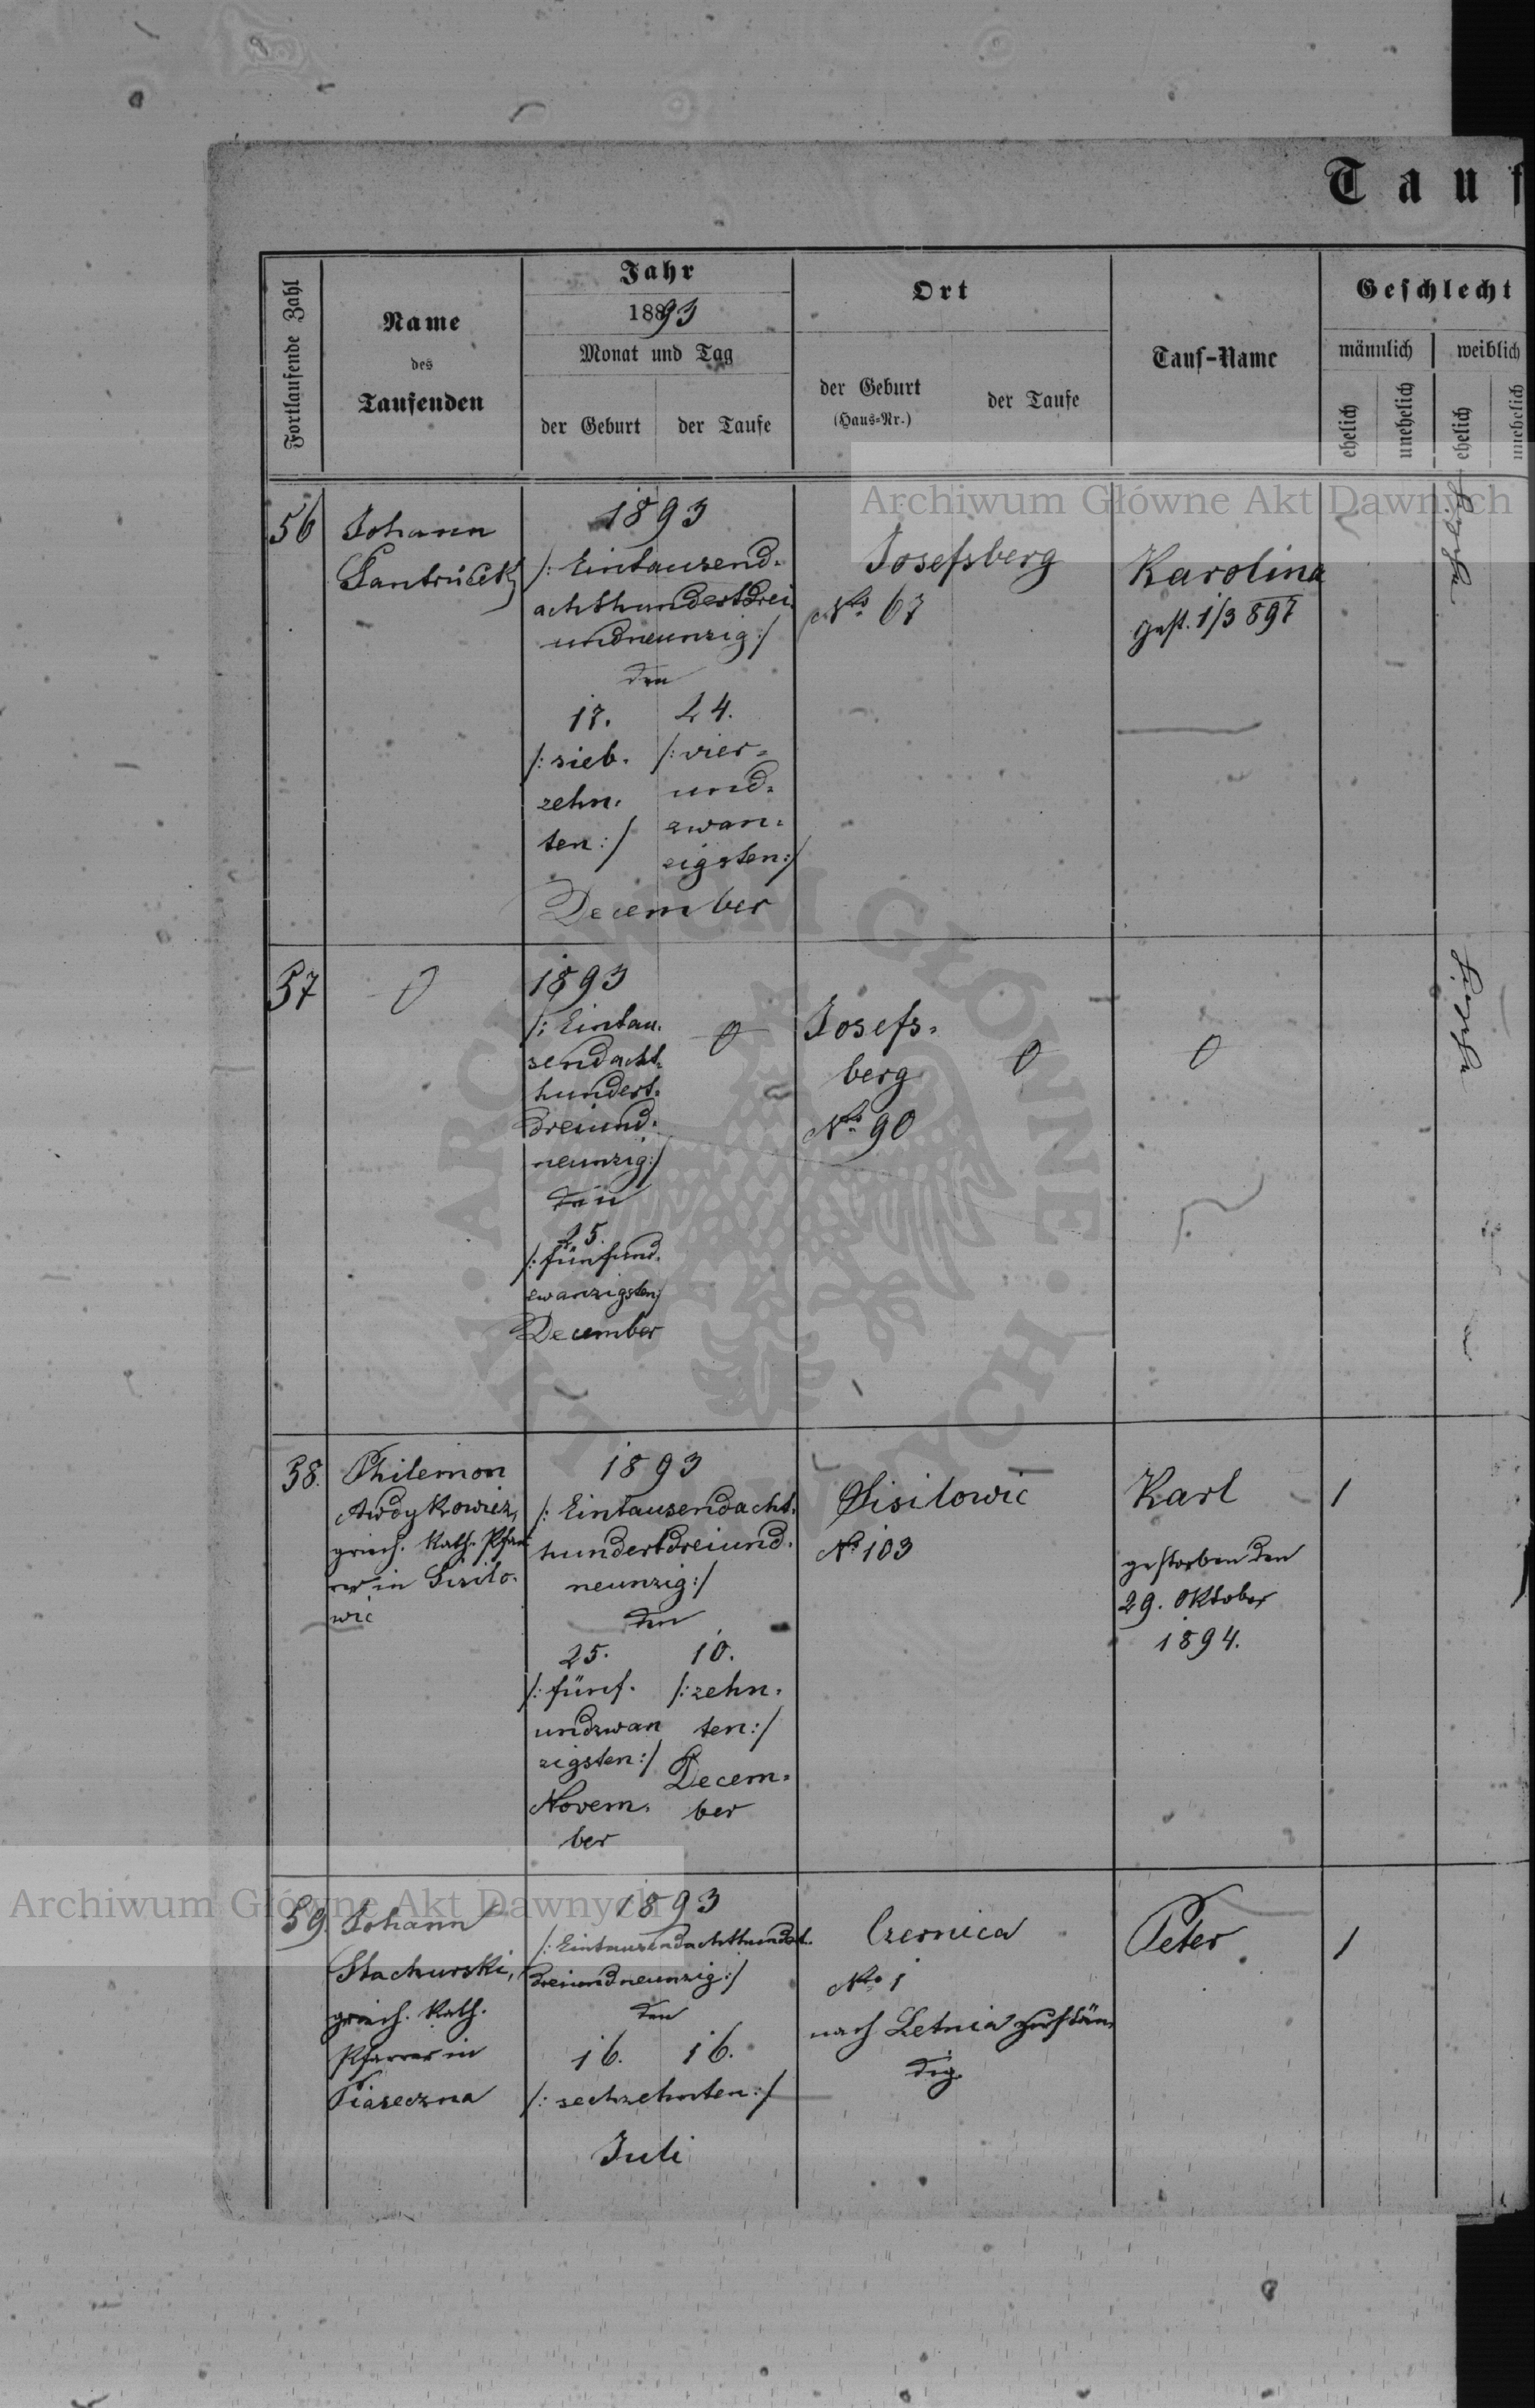 Tauf
Fortlaufende Zahl
Name
des
Taufenden
Jahr
1893
Monat und Tag
der Geburt
der Taufe
Ort
der Geburt
(Haus-Nr.)
der Taufe
Tauf-Name
Geschlecht
männlich
weiblich
ehelich
unehelich
ehelich
unehelich
Archiwum Główne Akt Dawnych
56
Johann
1893
/: Eintausend-
achthundertdrei
undneunzig :/
den
17.
/: sieb-
zehn-
ten :/
24.
/: vier-
und-
zwan-
zigsten :/
December
Josefsberg
No 67
Karolina
gest. 1/3 897
ehelich
57
0
1893
/: Eintau-
sendacht-
hundert-
dreiund-
neunzig :/
den
25.
/: fünfund-
zwanzigsten :/
December
0
Josefs-
berg
No 90
0
0
ehelich
58.
Philemon
griech. kath. Pfar-
rer in Sisilo-
wic
1893
/: Eintausendacht-
hundertdreiund-
neunzig :/
den
25.
/: fünf-
undzwan
zigsten :/
Novem-
ber
10.
/: zehn-
ten :/
Decem-
ber
Sisilowic
No 103
Karl
gestorben den
29. Oktober
1894.
1
59.
Johann
Stachurski,
griech. kath.
Pfarrer in
Piaseczna
1893
/: Eintausendachthundert-
dreiundneunzig :/
den
16. 16.
/: sechzehnten :/
Juli
Czernica
No 1
nach Letnia zustän-
dig.
Peter
1
Archiwum Główne Akt Dawnych
ARCHIWUM GŁÓWNE AKT DAWNYCH